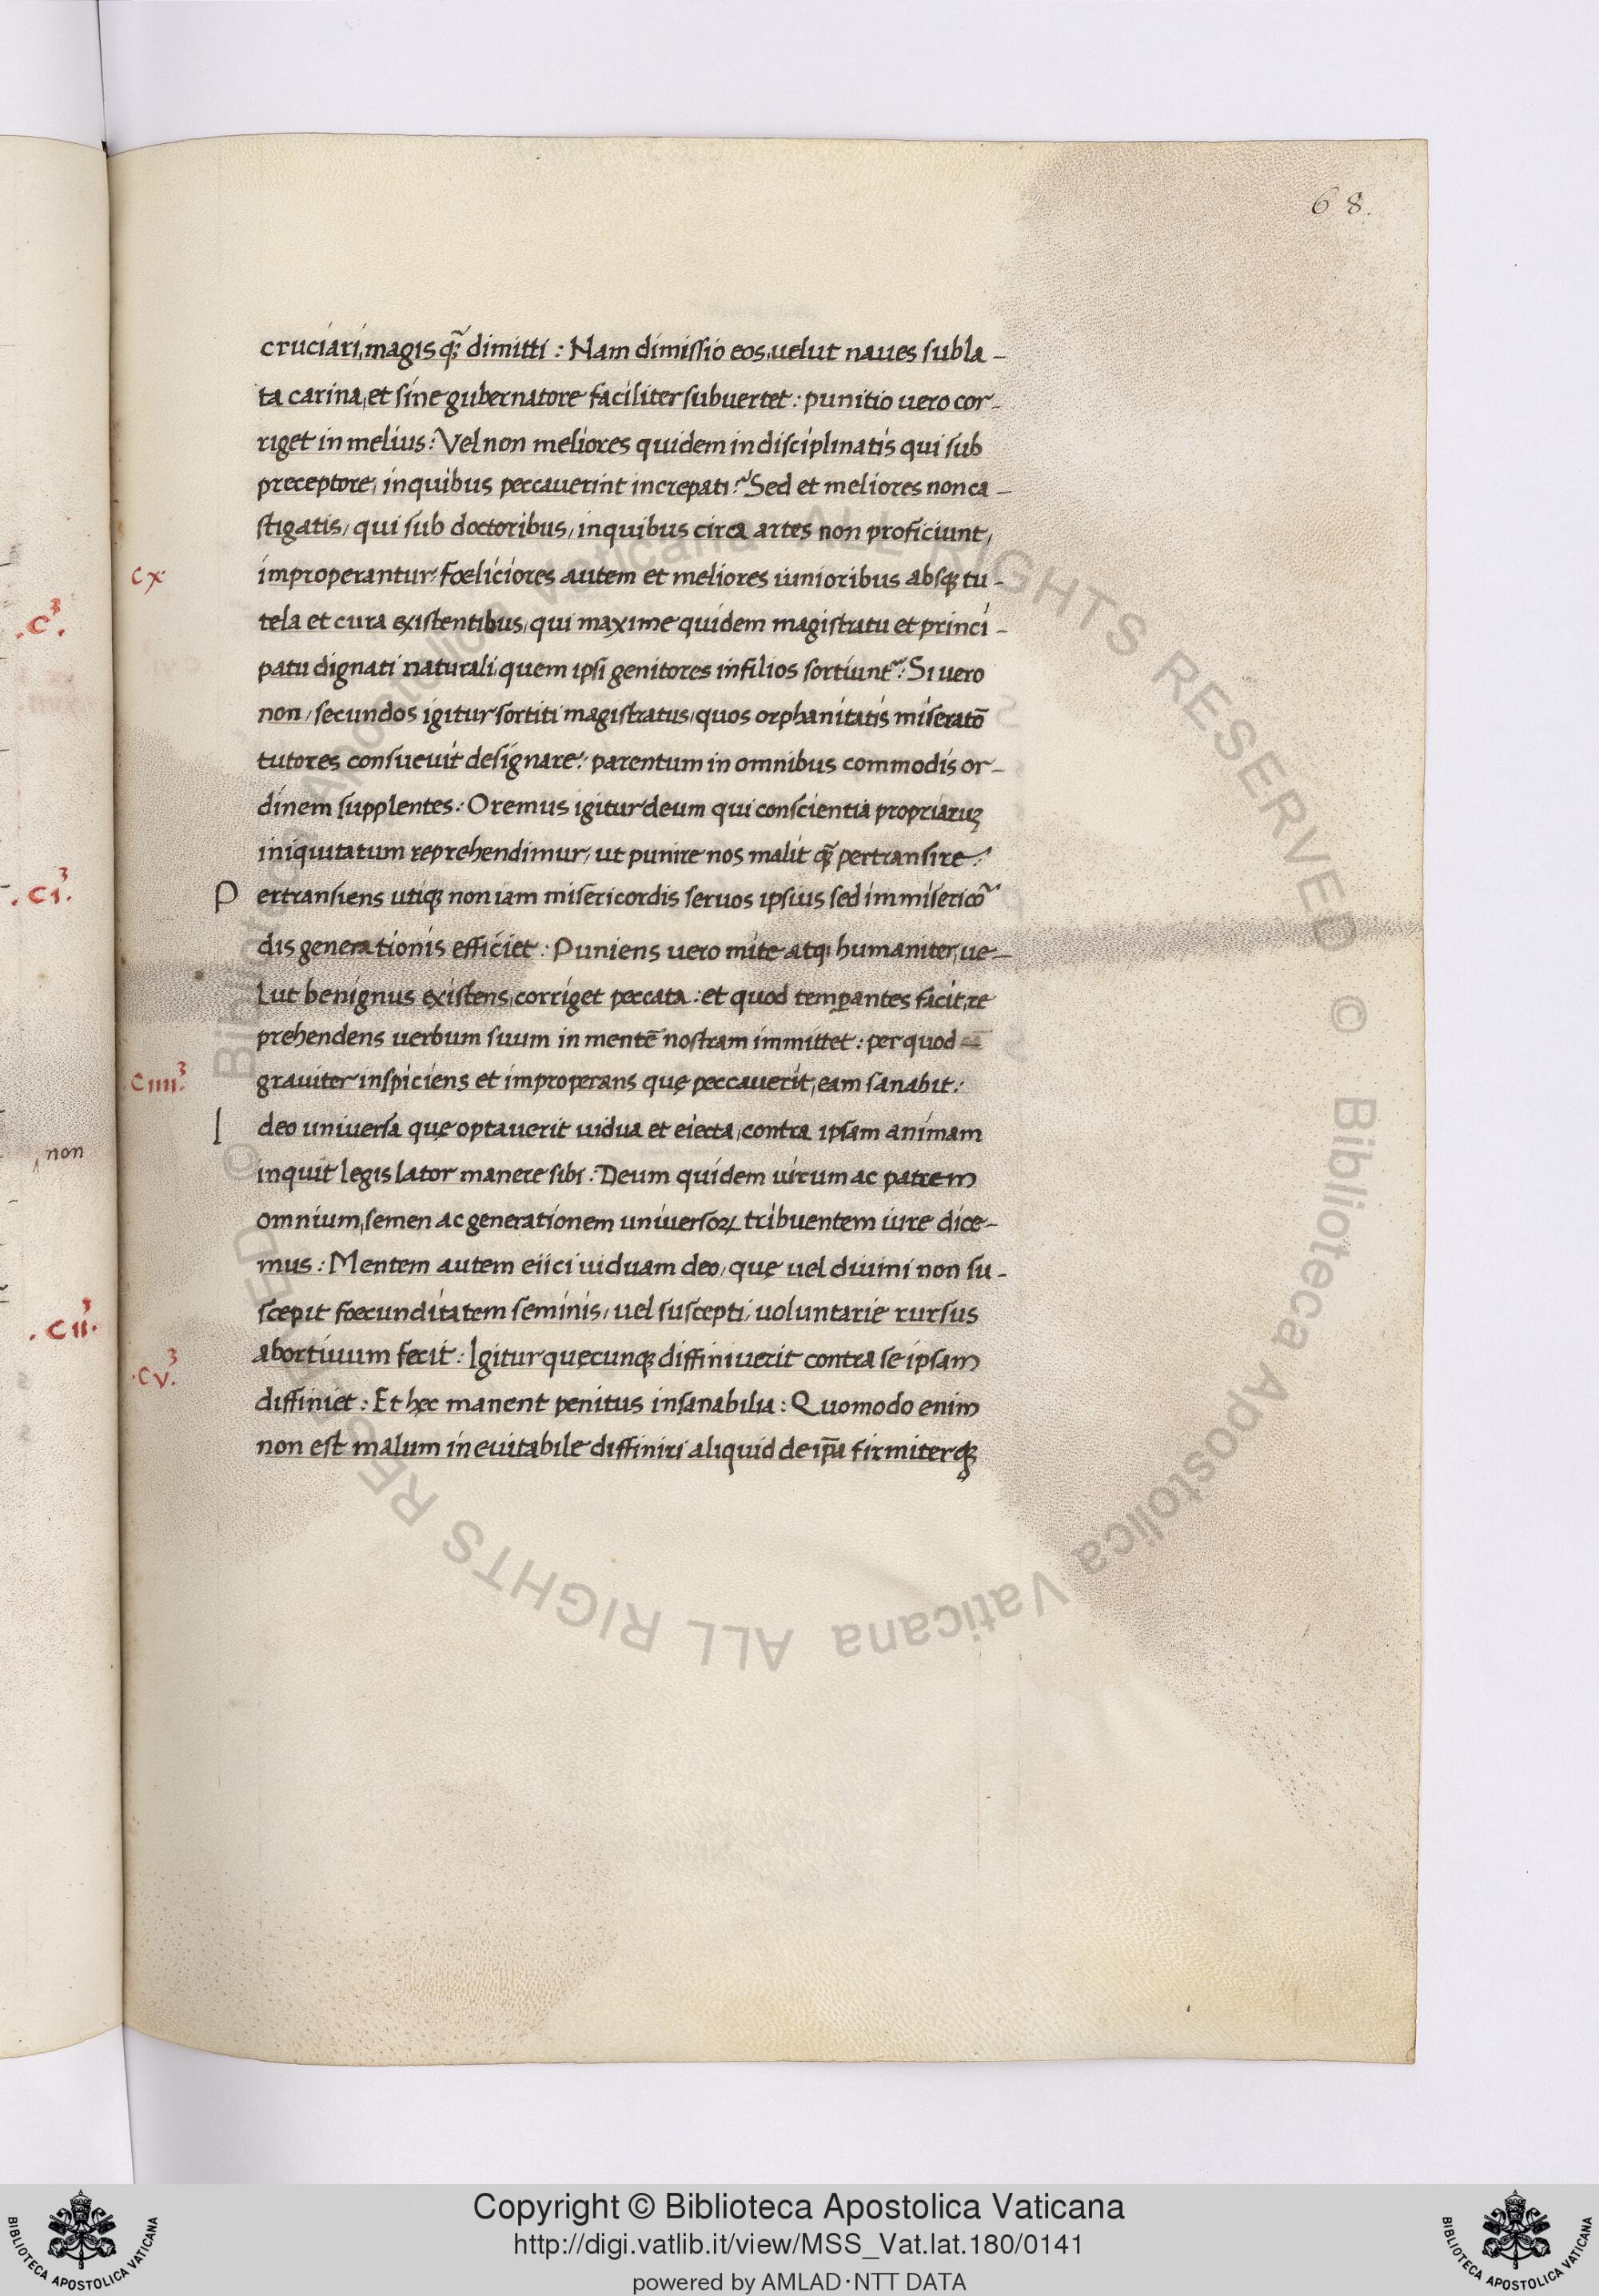 68.
cruciari, magis q̃ꝫ dimitti : Nam dimissio eos, uelut naues subla-
ta carina, et sine gubernatore faciliter subuertet : punitio uero cor-
riget in melius : Vel non meliores quidem indisciplinatis qui sub
preceptore, in quibus peccauerint increpati ? Sed et meliores non ca-
stigatis, qui sub doctoribus, in quibus circa artes non proficiunt,
cx. improperantur. fœliciores autem et meliores iunioribus absqꝫ tu-
tela et cura existentibus, qui maxime quidem magistratu et princi-
patu dignati naturali quem ipsi genitores in filios sortiunt᷑ : Si uero
non, secundos igitur sortiti magistratus, quos orphanitatis miseratõ
tutores consueuit designare : parentum in omnibus commodis or-
dinem supplentes : Oremus igitur deum qui conscientia propriaruꝫ
iniquitatum reprehendimur, ut punire nos malit q̃ꝫ pertransire :
Pertransiens utiqꝫ non iam misericordis seruos ipsius sed immisericõ
dis generationis efficiet : Puniens uero mite atqꝫ humaniter, ue-
lut benignus existens, corriget peccata : et quod temꝑantes facit, re
prehendens uerbum suum in mentẽ nostram immittet : per quod
ciiii.3 grauiter inspiciens et improperans quę peccauerit, eam sanabit :
Ideo uniuersa quę optauerit uidua et eiecta, contra ipsam animam
inquit legislator manere sibi : Deum quidem uirum ac patrem
omnium, semen ac generationem uniuersoꝝ tribuentem iure dice-
mus : Mentem autem eiici uiduam deo, quę uel diuini non su-
scepit foecunditatem seminis, uel suscepti, uoluntarie rursus
abortiuum fecit : Igitur quęcunqꝫ diffiniuerit contra se ipsam
.cv.3
diffiniet : Et hęc manent penitus insanabilia : Quomodo enim
non est malum ineuitabile diffiniri aliquid de ip̃a firmiterqꝫ
.c.3
.ci.3
non
.cii.3
© Biblioteca Apostolica Vaticana ALL RIGHTS RESERVED © Biblioteca Apostolica Vaticana ALL RIGHTS RESERVED
Copyright © Biblioteca Apostolica Vaticana
http://digi.vatlib.it/view/MSS_Vat.lat.180/0141
powered by AMLAD·NTT DATA
BIBLIOTECA APOSTOLICA VATICANA
BIBLIOTECA APOSTOLICA VATICANA